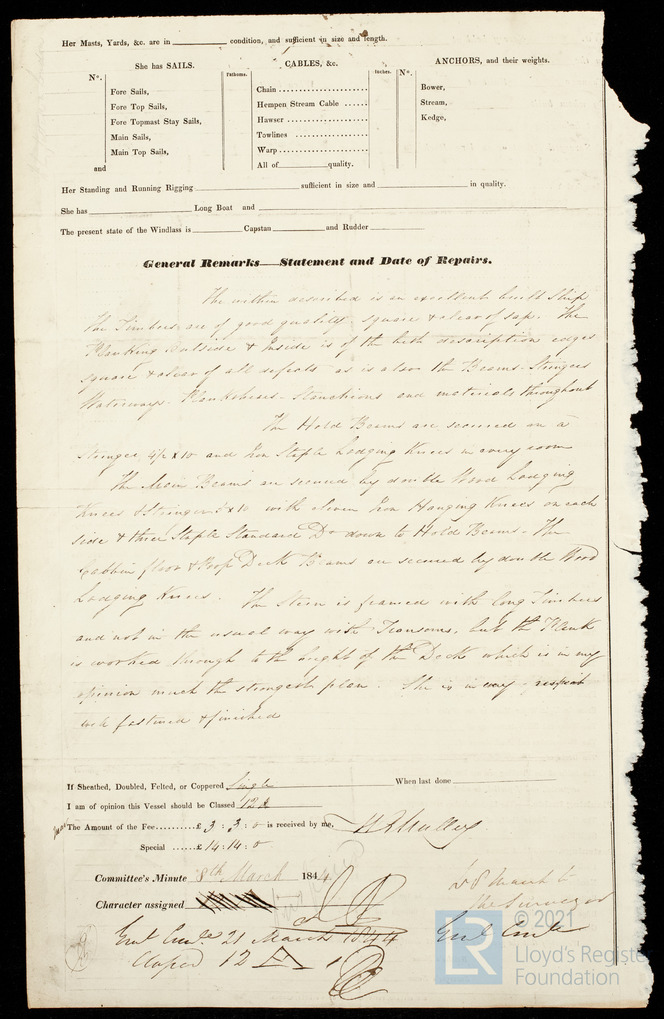 Her Masts, Yards, &c. are in condition, and sufficient in size and length.
She has SAILS.
CABLES, &c.
ANCHORS, and their weights.
N°.
Fathoms.
Inches.
N°.
Fore Sails,
Fore Top Sails,
Fore Topmast Stay Sails,
Main Sails,
Main Top Sails,
and
Chain
Hempen Stream Cable
Hawser
Towlines
Warp
All of quality.
Bower,
Stream,
Kedge,
Her Standing and Running Rigging sufficient in size and in quality.
She has Long Boat and
The present state of the Windlass is Capstan and Rudder
General Remarks—Statement and Date of Repairs.
The within described is an excellent built Ship
The Timbers are of good quality square & clear of sap. The
Planking outside & Inside is of the best description edges
square & clear of all defects as is also the Beams. Stringers
Waterways. Planksheers. Stanchions and materials throughout
The Hold Beams are secured on a
Stringer 4½ x 10 and Iron Staple Lodging Knees in every room
The Main Beams are secured by double Wood Lodging
Knees & Stringer x 10 with eleven Iron Hanging Knees on each
side & three Staple Standard Do down to Hold Beams. The
Cabbin floor & Poop Deck Beams are secured by double Wood
Lodging Knees. The Stern is framed with long Timbers
and not in the usual way with Transoms, but the Plank
is worked through to the height of the Deck which is in my
opinion much the strongest plan. She is in every respect
well fastened & finished
If Sheathed, Doubled, Felted, or Coppered Single When last done
I am of opinion this Vessel should be Classed 12 A
The Amount of the Fee £ 3 : 3 : 0 is received by me,
Special £ 14 : 14 : 0
Committee's Minute 8th March 1844
Character assigned
the Surveyor
21 March 1844
Classed 12 A
© 2021
LR
Lloyd's Register
Foundation